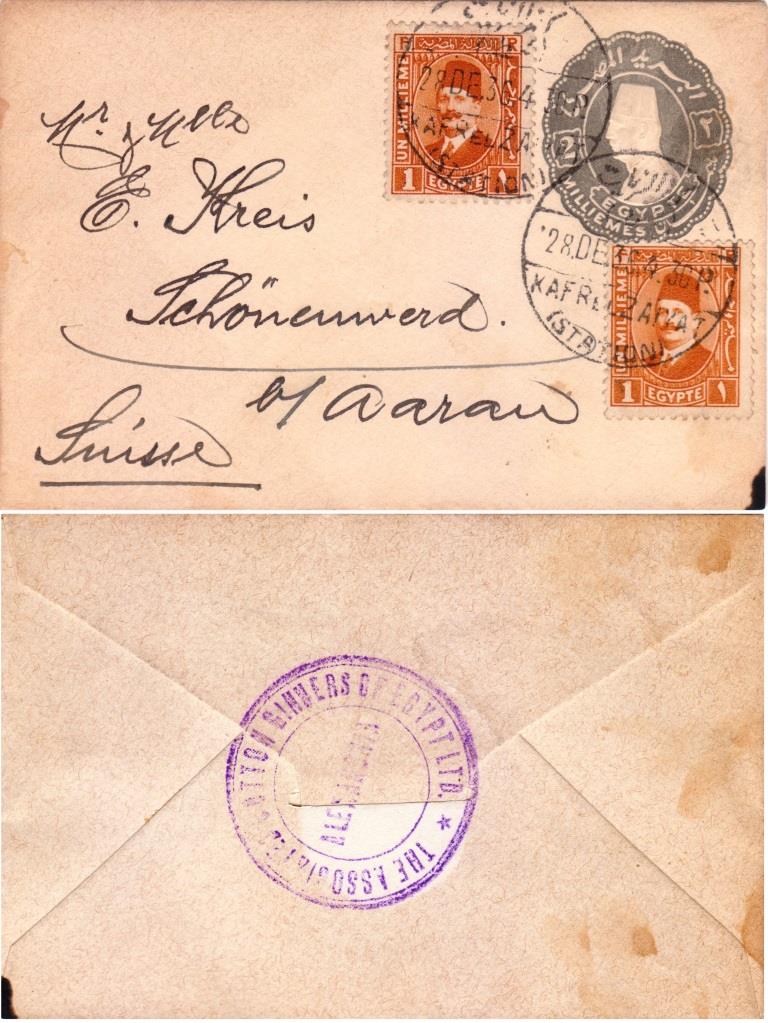 Mr & Mlle
E. Kreis
Schönenwerd.
b/ Aarau
Suisse
UN MILLIEME
1 EGYPTE ١
28.DE.36.4.30.P.
KAFR EL ZAIYAT
(STATION)
البريد المصرية
2
EGYPTE
MILLIEMES
28.DE.36.4.30.P.
KAFR EL ZAIYAT
(STATION)
UN MILLIEME
1 EGYPTE ١
THE ASSOCIATED COTTON GINNERS OF EGYPT LTD. *
ALEXANDRIA